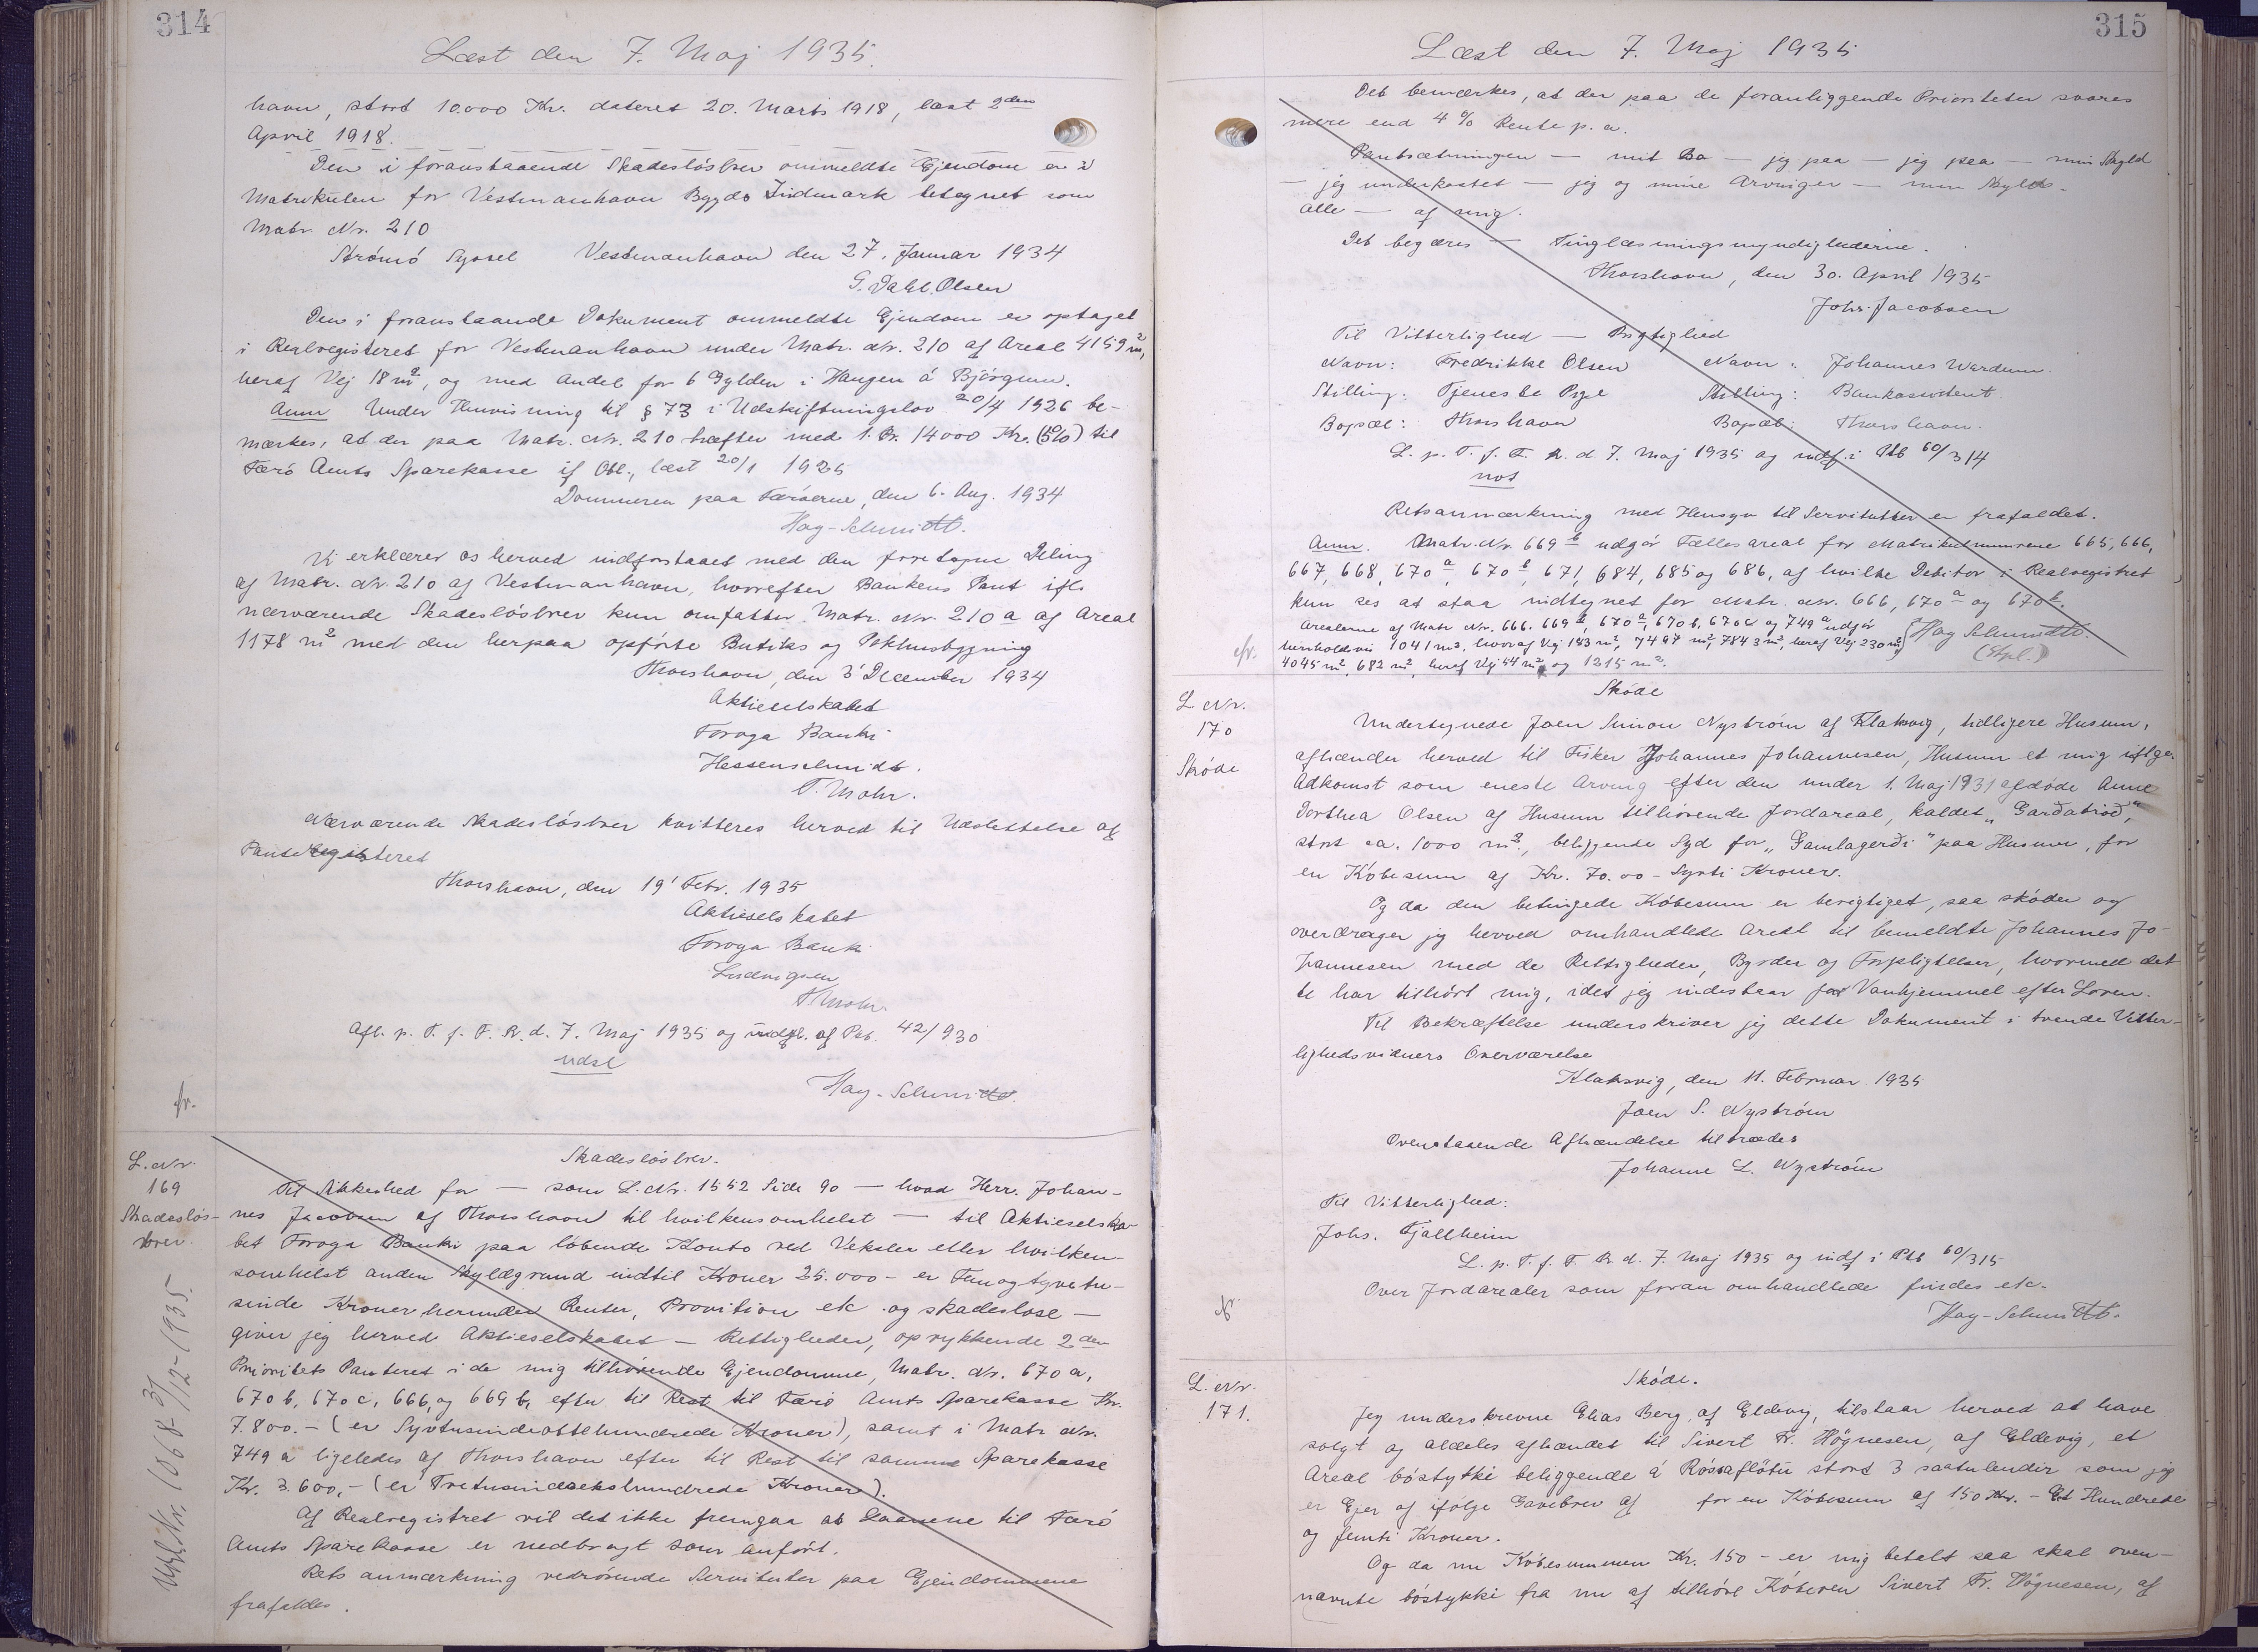 314
Læst den 7. Maj 1935.
havn, stort 10.000 Kr. dateret 20. Marts 1918, læst 2den
April 1918.
Den i foranstaaende Skadesløsbrev ommeldte Ejendom er i
Matrikulen for Vestmanhavn Bygds Indmark betegnet som
Matr. Nr. 210
Strömö Syssel Vestmanhavn den 27. Januar 1934
G. Dahl. Olsen
Den i foranstaaende Dokument ommeldte Ejendom er optaget
i Realregisteret for Vestmanhavn under Matr. Nr. 210 af Areal 4159 m²,
heraf Vej 18 m², og med Andel for 6 Gylden i Haugen á Bjørgum.
Anm Under Henvisning til § 73 i Udskiftningslov 20/4 1926 be-
mærkes, at der paa Matr. Nr. 210 hæfter med 1. Pr. 14000 Kr. (5%) til
Færö Amts Sparekasse if Obl., læst 20/1 1925
Dommeren paa Færöerne, den 6. Aug. 1934
Hay-Schmidt.
Vi erklærer os herved indforstaaet med den foretagne Deling
af Matr. Nr. 210 af Vestmanhavn, hvorefter Bankens Pant ifl.
nærværende Skadeslösbrev kun omfatter Matr. Nr. 210 a af Areal
1178 m² med den herpaa opförte Butiks og Pakhusbygning
Thorshavn, den 3' December 1934
Aktieselskabet
Foroya Banki
Hessenschmidt.
T. Mohr.
Nærværende Skadeslösbrev kvitteres herved til Udslettelse af
Panteregisteret
Thorshavn, den 19' Febr. 1935
Aktieselskabet
Foroya Banki
Ludvigsen
T Mohr.
Afl. p. T. f. F. R. d. 7. Maj 1935 og indf. af Ptb. 42/930
udsl
Hay-Schmidt.
fr.
L. Nr.
169
Skadeslös-
brev.
Udsl. Nr. 1068 31/12-1935.
Skadeslösbrev.
Til Sikkerhed for — som L. Nr. 1552 Side 90 — hvad Herr. Johan-
nes Jacobsen af Thorshavn til hvilkensomhelst — til Aktieselska-
bet Foroya Banki paa löbende Konto ved Veksler eller hvilken-
somhelst anden Skyldgrund indtil Kroner 25.000 - er Femogtyvetu-
sinde Kroner herunder Renter, Provition etc. og skadeslöse —
giver jeg herved Aktieselskabet — Rettigheder, oprykkende 2den
Prioritets Panteret i de mig tilhörende Ejendomme, Matr. Nr. 670 a,
670 b, 670 c, 666, og 669 b, efter til Rest til Færö Amts Sparekasse Kr.
7.800.- (er Syvtusindeottehundrede Kroner), samt i Matr Nr.
749 a ligeledes af Thorshavn efter til Rest til samme Sparekasse
Kr. 3.600,- (er Tretusindesekshundrede Kroner).
Af Realregistret vil det ikke fremgaa at Laanene til Færö
Amts Sparekasse er nedbragt som anført.
Rets anmærkning vedrörende Servituter paa Ejendommene
frafaldes.
315
Læst den 7. Maj 1935
Det bemærkes, at der paa de foranliggende Prioriteter svares
mere end 4 % Rente p. a.
Pantsætningen — mit Bo — jeg paa — jeg paa — min Skyld
— jeg underkastet — jeg og mine Arvinger — min Skylds-
alle — af mig.
Det begæres — Tinglæsningsmyndighederne.
Thorshavn, den 30. April 1935
Johs. Jacobsen
Til Vitterlighed — Rigtighed
Navn: Fredrikke Olsen Navn: Johannes Wardum.
Stilling: Tjeneste Pige Stilling: Bankassistent.
Bopæl: Thorshavn Bopæl: Thorshavn.
L. p. T. f. F. R. d 7. Maj 1935 og indf. i Ptb 60/314
not
Retsanmærkning med Hensyn til Servitutter er frafaldet.
Anm. Matr. Nr. 669 b udgör Fællesareal for Matrikulnumrene 665, 666,
667, 668, 670 a, 670 b, 671, 684, 685 og 686, af hvilke Debitor i Realregistret
kun ses at staa indtegnet for Matr. Nr. 666, 670 a og 670 b.
Arealerne af Matr Nr. 666. 669 b, 670 a, 670 b, 670 c og 749 a udgör
henholdsvis 1041 m², hvoraf Vej 143 m², 7497 m², 7843 m², heraf Vej 230 m²,
4045 m², 682 m², heraf Vej 44 m² og 1215 m².
Hay Schmidt.
cfr.
L Nr.
170
Sköde
Sköde
Undertegnede Joen Simon Nyström af Klaksvig, tidligere Husum,
afhænder herved til Fisker Johannes Johannesen, Husum et mig iflge.
Adkomst som eneste Arving efter den under 1. Maj 1931 afdöde Anne
Dorthea Olsen af Husum tilhörende Jordareal, kaldet „Garðatröð,"
stort ca. 1000 m², beliggende Syd for „Gamlagerði" paa Husum, for
en Köbesum af Kr. 70.00 - Systi Kroner.
Og da den betingede Köbesum er berigtiget, saa sköder og
overdrager jeg herved omhandlede Areal til bemeldte Johannes Jo-
hannesen med de Rettigheder, Byrder og Forpligtelser, hvormed det
te har tilhört mig, idet jeg indestaar for Vanhjemmel efter Loven.
Til Bekræftelse underskriver jeg dette Dokument i tvende Vitter-
lighedsvidners Overværelse
Klaksvig, den 11. Februar 1935
Joen S. Nyström
Ovenstaaende Afhændelse tiltrædes
Johanne L. Nyström
Til Vitterlighed:
Johs. Fjallheim
L. p. T. f. F. R. d. 7. Maj 1935 og indf i Ptb 60/315
Over Jordarealer som foran omhandlede findes etc.
Hay-Schmidt.
L. Nr.
171.
Sköde.
Jeg underskrevne Elias Berg, af Eldevig, tilstaar herved at have
solgt og aldeles afhændet til Sivert Fr. Högnesen, af Eldevig, et
Areal bóstykki beliggende á Róssaflötu stort 3 saatulendir som jeg
er Ejer af ifölge Gavebrev af for en Köbesum af 150 Kr. - Et Hundrede
og femti Kroner.
Og da nu Köbesummen Kr. 150 - er mig betalt saa skal oven-
nævnte bóstykki fra nu af tilhöre Köberen Sivert Fr. Högnesen, af